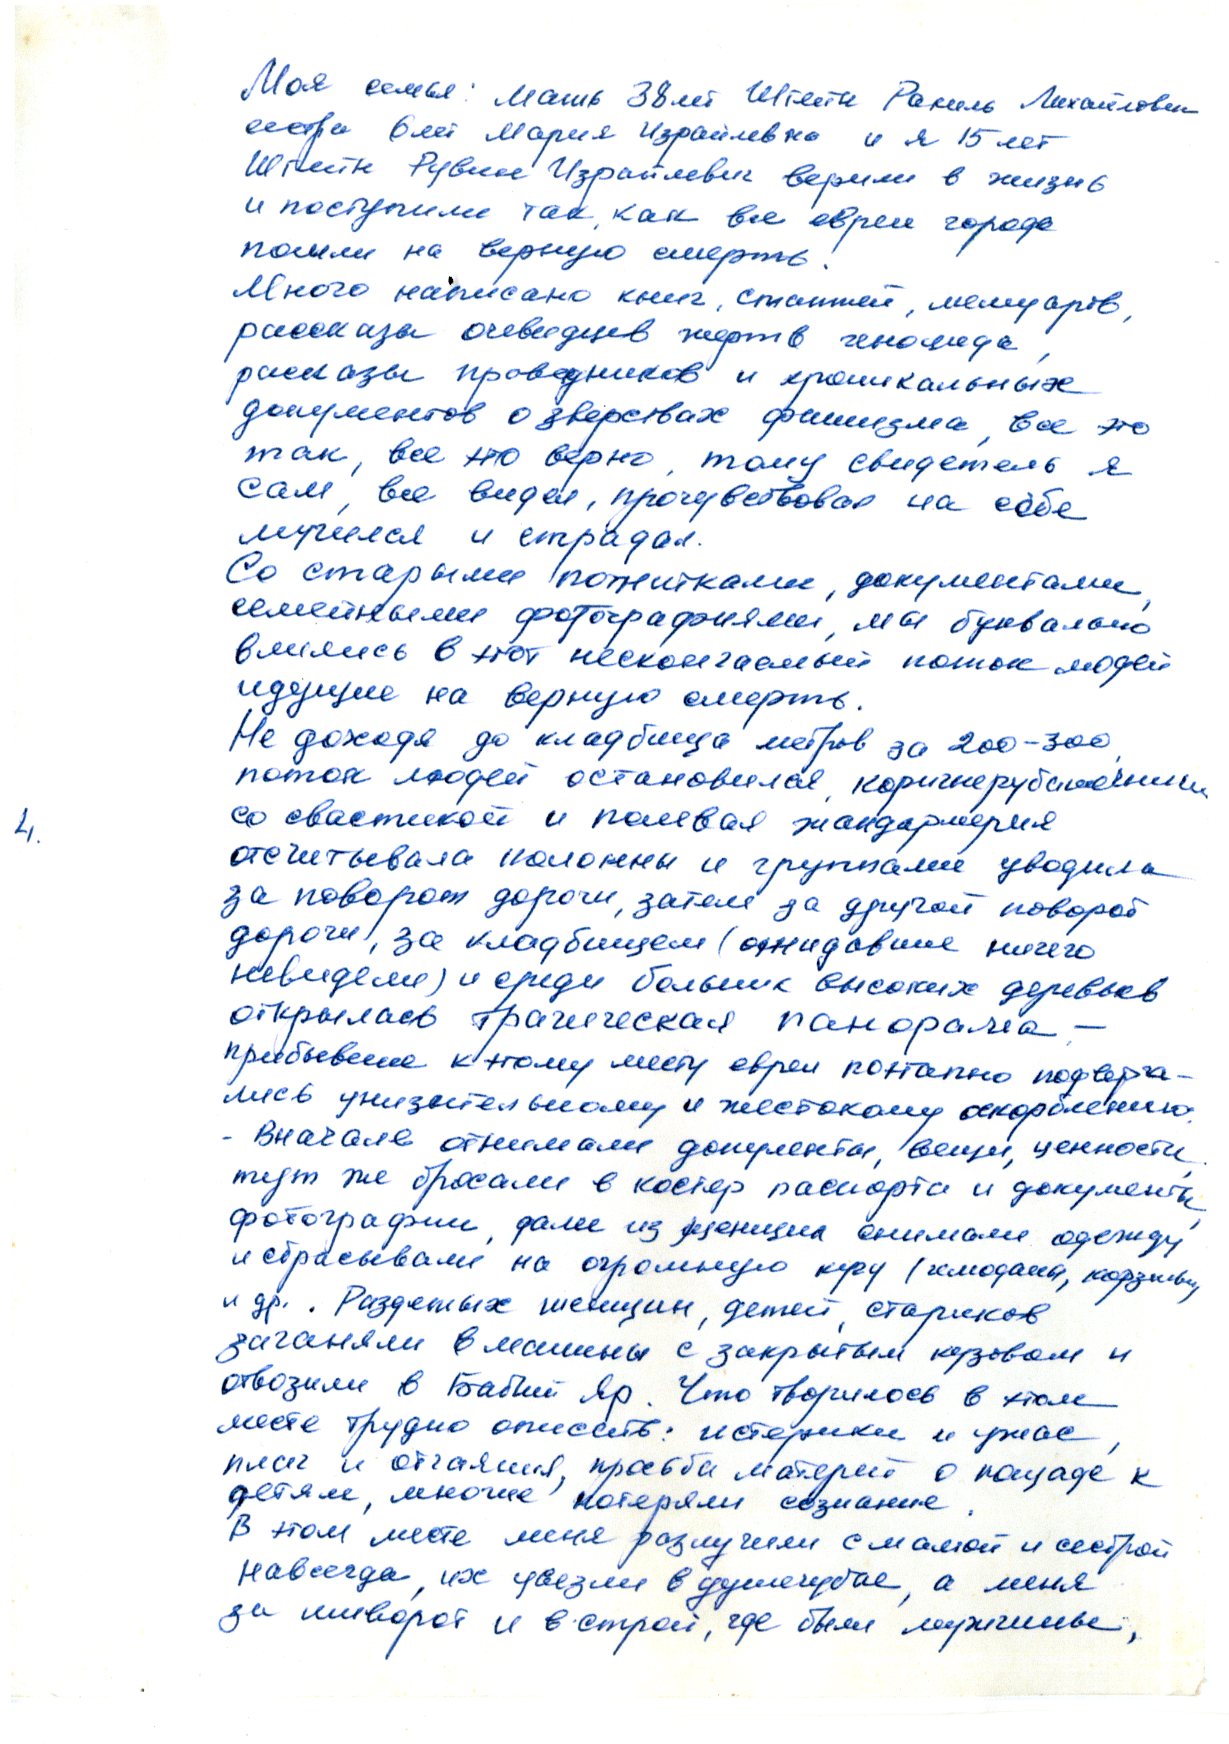 Моя семья: мать 38 лет Штейн Рахиль Михайловна
сестра 6 лет Мария Израйлевна и я 15 лет
Штейн Рувим Израйлевич верили в жизнь
и поступили так, как все евреи города
пошли на верную смерть.
Много написано книг, статтей, мемуаров,
рассказы очевидцев жертв геноцида,
рассказы праведников и уникальных
документов о зверствах фашизма, все это
так, все это верно, тому свидетель я
сам, все видел, прочувствовал на себе
мучился и страдал.
Со старыми пожитками, документами,
семейными фотографиями, мы буквально
влились в этот нескончаемый поток людей
идущие на верную смерть.
Не доходя до кладбища метров за 200-300,
поток людей остановился, коричнерубашечники
со свастикой и полевая жандармерия
4.
отсчитывала колонны и группами уводила
за поворот дороги, затем за другой поворот
дороги, за кладбищем (ожидавшие ничего
невидели) и среди больших высоких деревьев
открылась трагическая панорама –
прибывшие к этому месту евреи поэтапно подверга-
лись унизительному и жестокому оскорблению.
- Вначале отнимали документы, вещи, ценности,
тут же бросали в костер паспорта и документы,
фотографии, дале из женщин снимали одежду
и сбрасывали на огромную кучу (чемоданы, корзины
и др.. Раздетых женщин, детей, стариков
заганяли в машины с закрытым кузовом и
отвозили в Бабий Яр. Что творилось в этом
месте трудно описать: истерики и ужас,
плач и отчаяния, просьба матерей о пощаде к
детям, многие потеряли сознание.
В этом месте меня разлучили с мамой и сестрой
навсегда, их увезли в душегубке, а меня
за шиворот и в строй, где были мужчины,